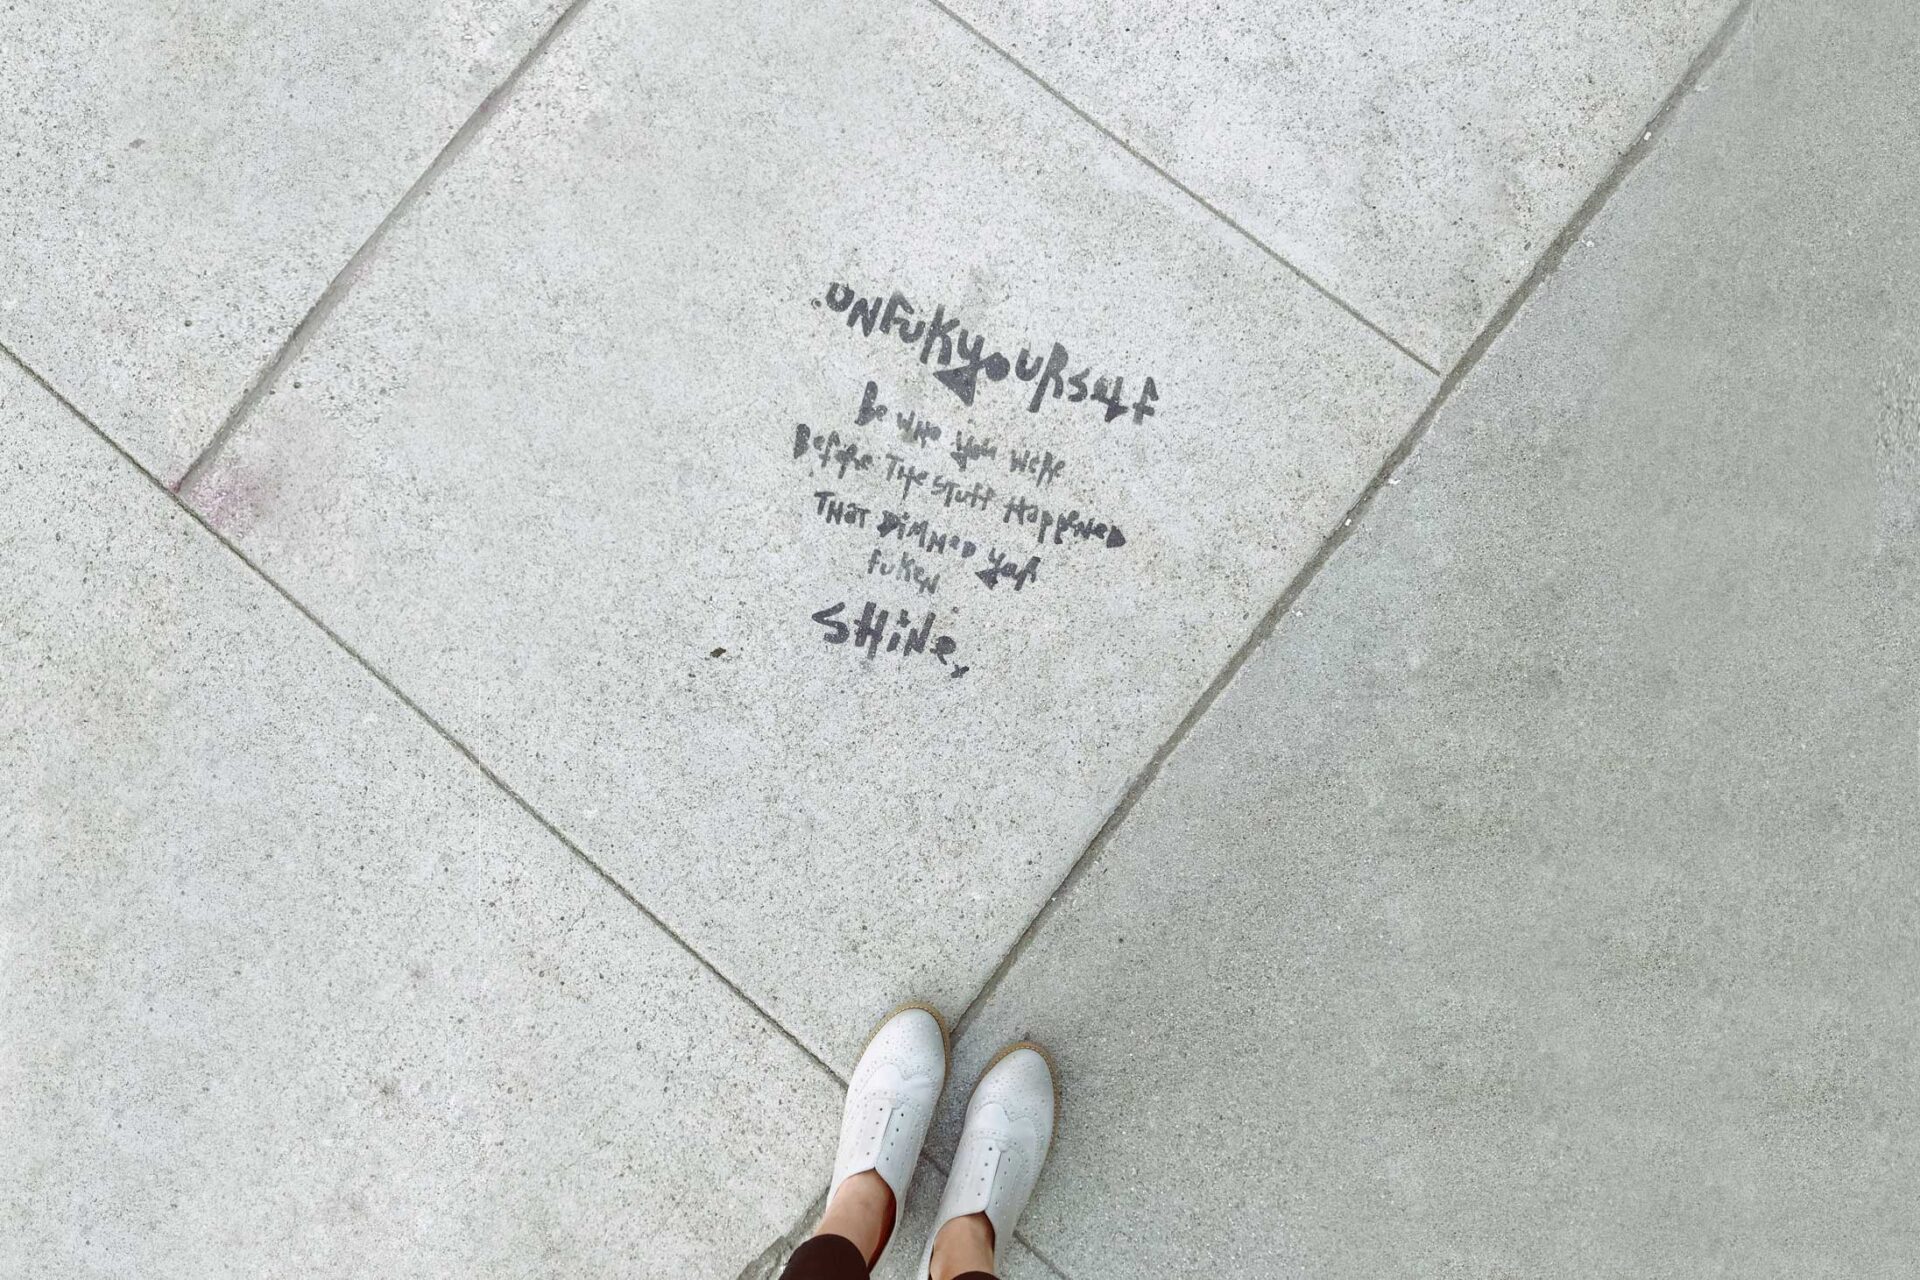 .UNFUKyOURSELF
Be WHO you WeRe
BefoRe THe STuff HappeNeD
THaT DiMMeD yaR
fuKeN
SHiNe.x